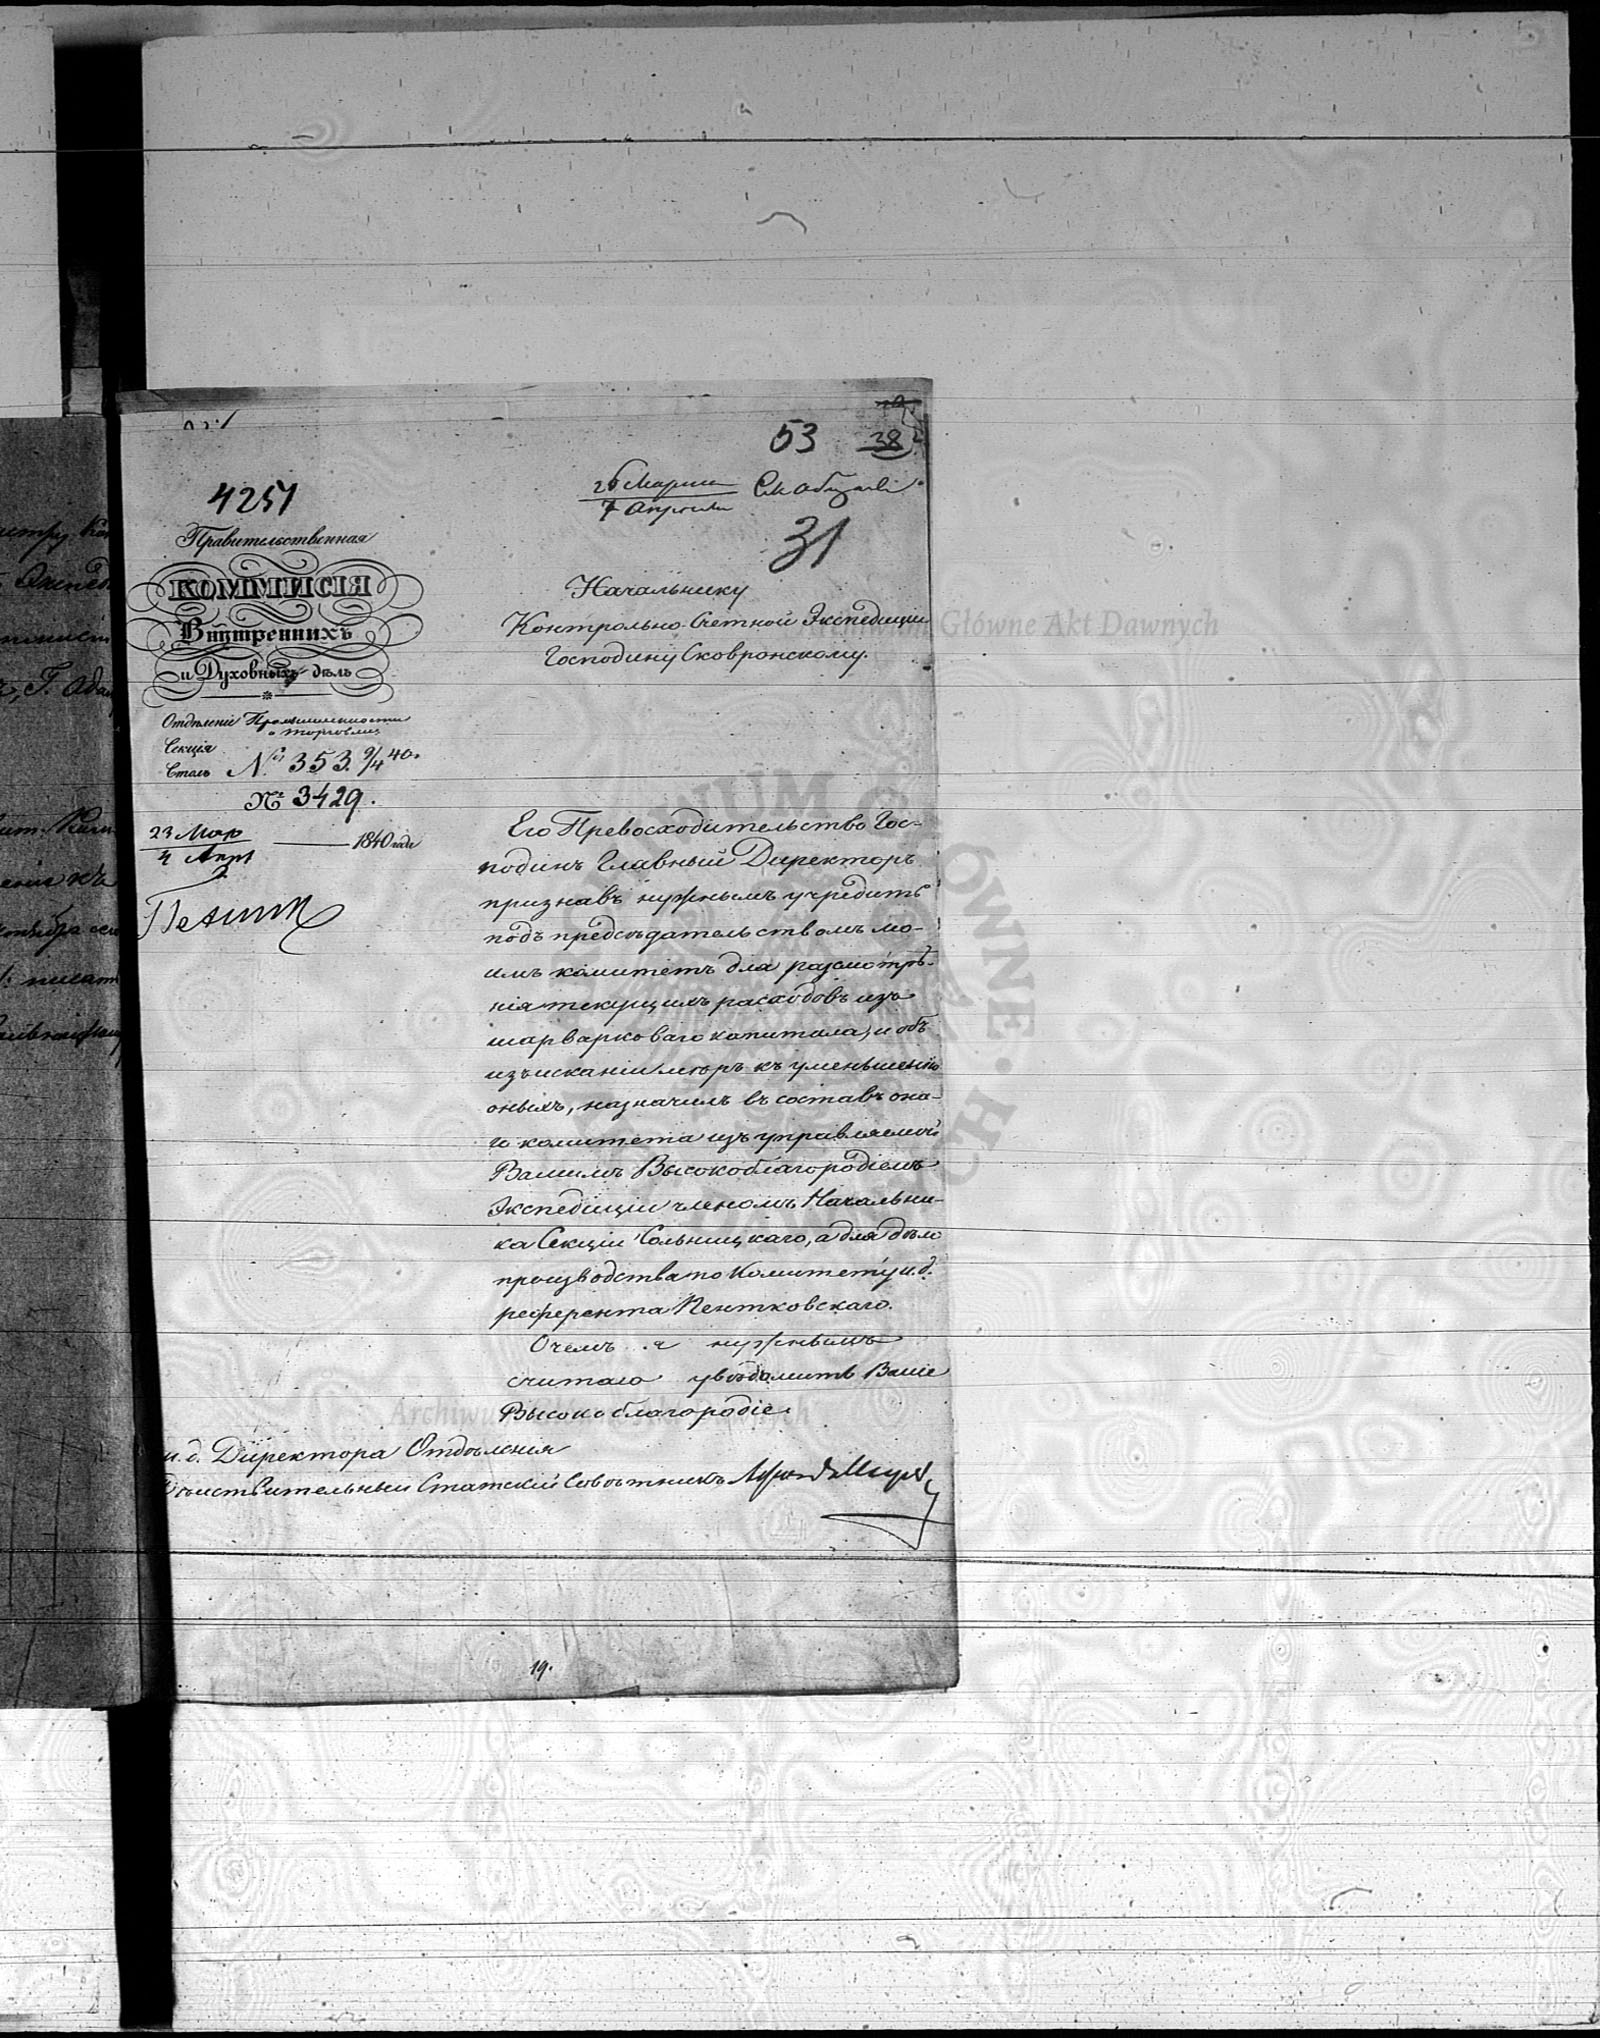 53 38
4251
26 Марта
7 Апреля
31
Правительственная
КОММИСІЯ
Внутреннихъ
и Духовныхъ дѣлъ
Отдѣленіе Промышленности
и торговли
Секція
Столъ № 353. 9/4 40.
№ 3429.
23 Мар
4 Апр 1840 года
Начальнику
Контрольно-Счетной Экспедиціи
Господину Сковронскому.
Его Превосходительство Гос-
подинъ Главный Директоръ
признавъ нужнымъ учредить
подъ предсѣдательствомъ мо-
имъ комитетъ для разсмотрѣ-
нія текущихъ расходовъ изъ
шарварковаго капитала, и объ
изъисканіи мѣръ къ уменьшенію
оныхъ, назначилъ въ составъ она-
го комитета изъ управляемой
Вашимъ Высокоблагородіемъ
Экспедиціи членомъ Начальни-
ка Секціи Сольницкаго, а для дѣло
производства по Комитету и. д.
референта Пентковскаго.
О чемъ я нужнымъ
считаю увѣдомить Ваше
Высокоблагородіе.
и. д. Директора Отдѣленія
Дѣйствительный Статскій Совѣтникъ
19.
Archiwum Główne Akt Dawnych
Archiwum Główne Akt Dawnych